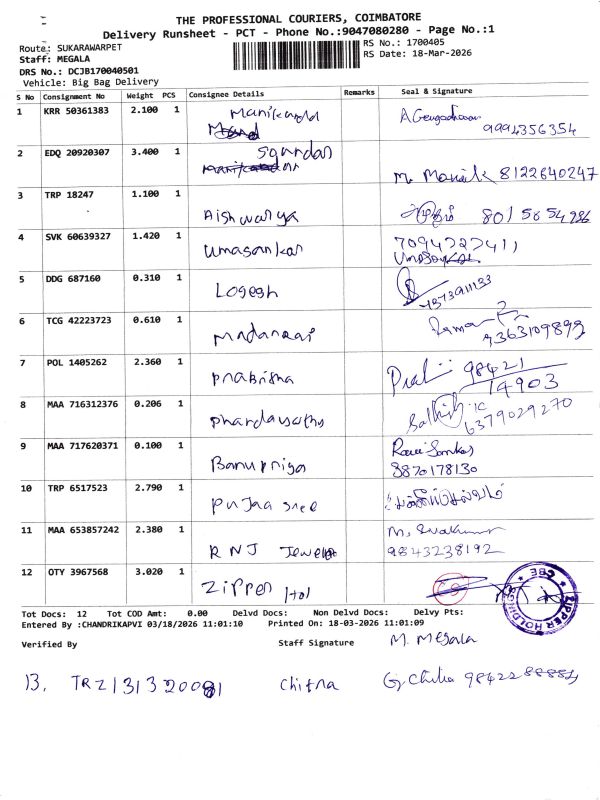 THE PROFESSIONAL COURIERS, COIMBATORE
Delivery Runsheet - PCT - Phone No.:9047080280 - Page No.:1
Route: SUKARAWARPET
RS No.: 1700405
Staff: MEGALA
RS Date: 18-Mar-2026
DRS No.: DCJB170040501
Vehicle: Big Bag Delivery
S No Consignment No Weight PCS Consignee Details Remarks Seal & Signature
1 KRR 50361383 2.100 1 Manikandd
9994356354
2 EDQ 20920307 3.400 1
M. Manik 8122640247
3 TRP 18247 1.100 1 Aishwarya
4 SVK 60639327 1.420 1 Umasankar 7094727411
5 DDG 687160 0.310 1 Logesh
7373911133
6 TCG 42223723 0.610 1 Madanraj
9363109899
7 POL 1405262 2.360 1 Prabisha 98421
14903
8 MAA 716312376 0.206 1
6379029270
9 MAA 717620371 0.100 1 Banupriya
8870178130
10 TRP 6517523 2.790 1 Pujaa sree
11 MAA 653857242 2.380 1 RNJ Jewells
9843238192
12 OTY 3967568 3.020 1 Zipper Hol
Tot Docs: 12 Tot COD Amt: 0.00 Delvd Docs: Non Delvd Docs: Delvy Pts:
Entered By :CHANDRIKAPVI 03/18/2026 11:01:10 Printed On: 18-03-2026 11:01:09
Verified By Staff Signature M. Megala
13. Chitra